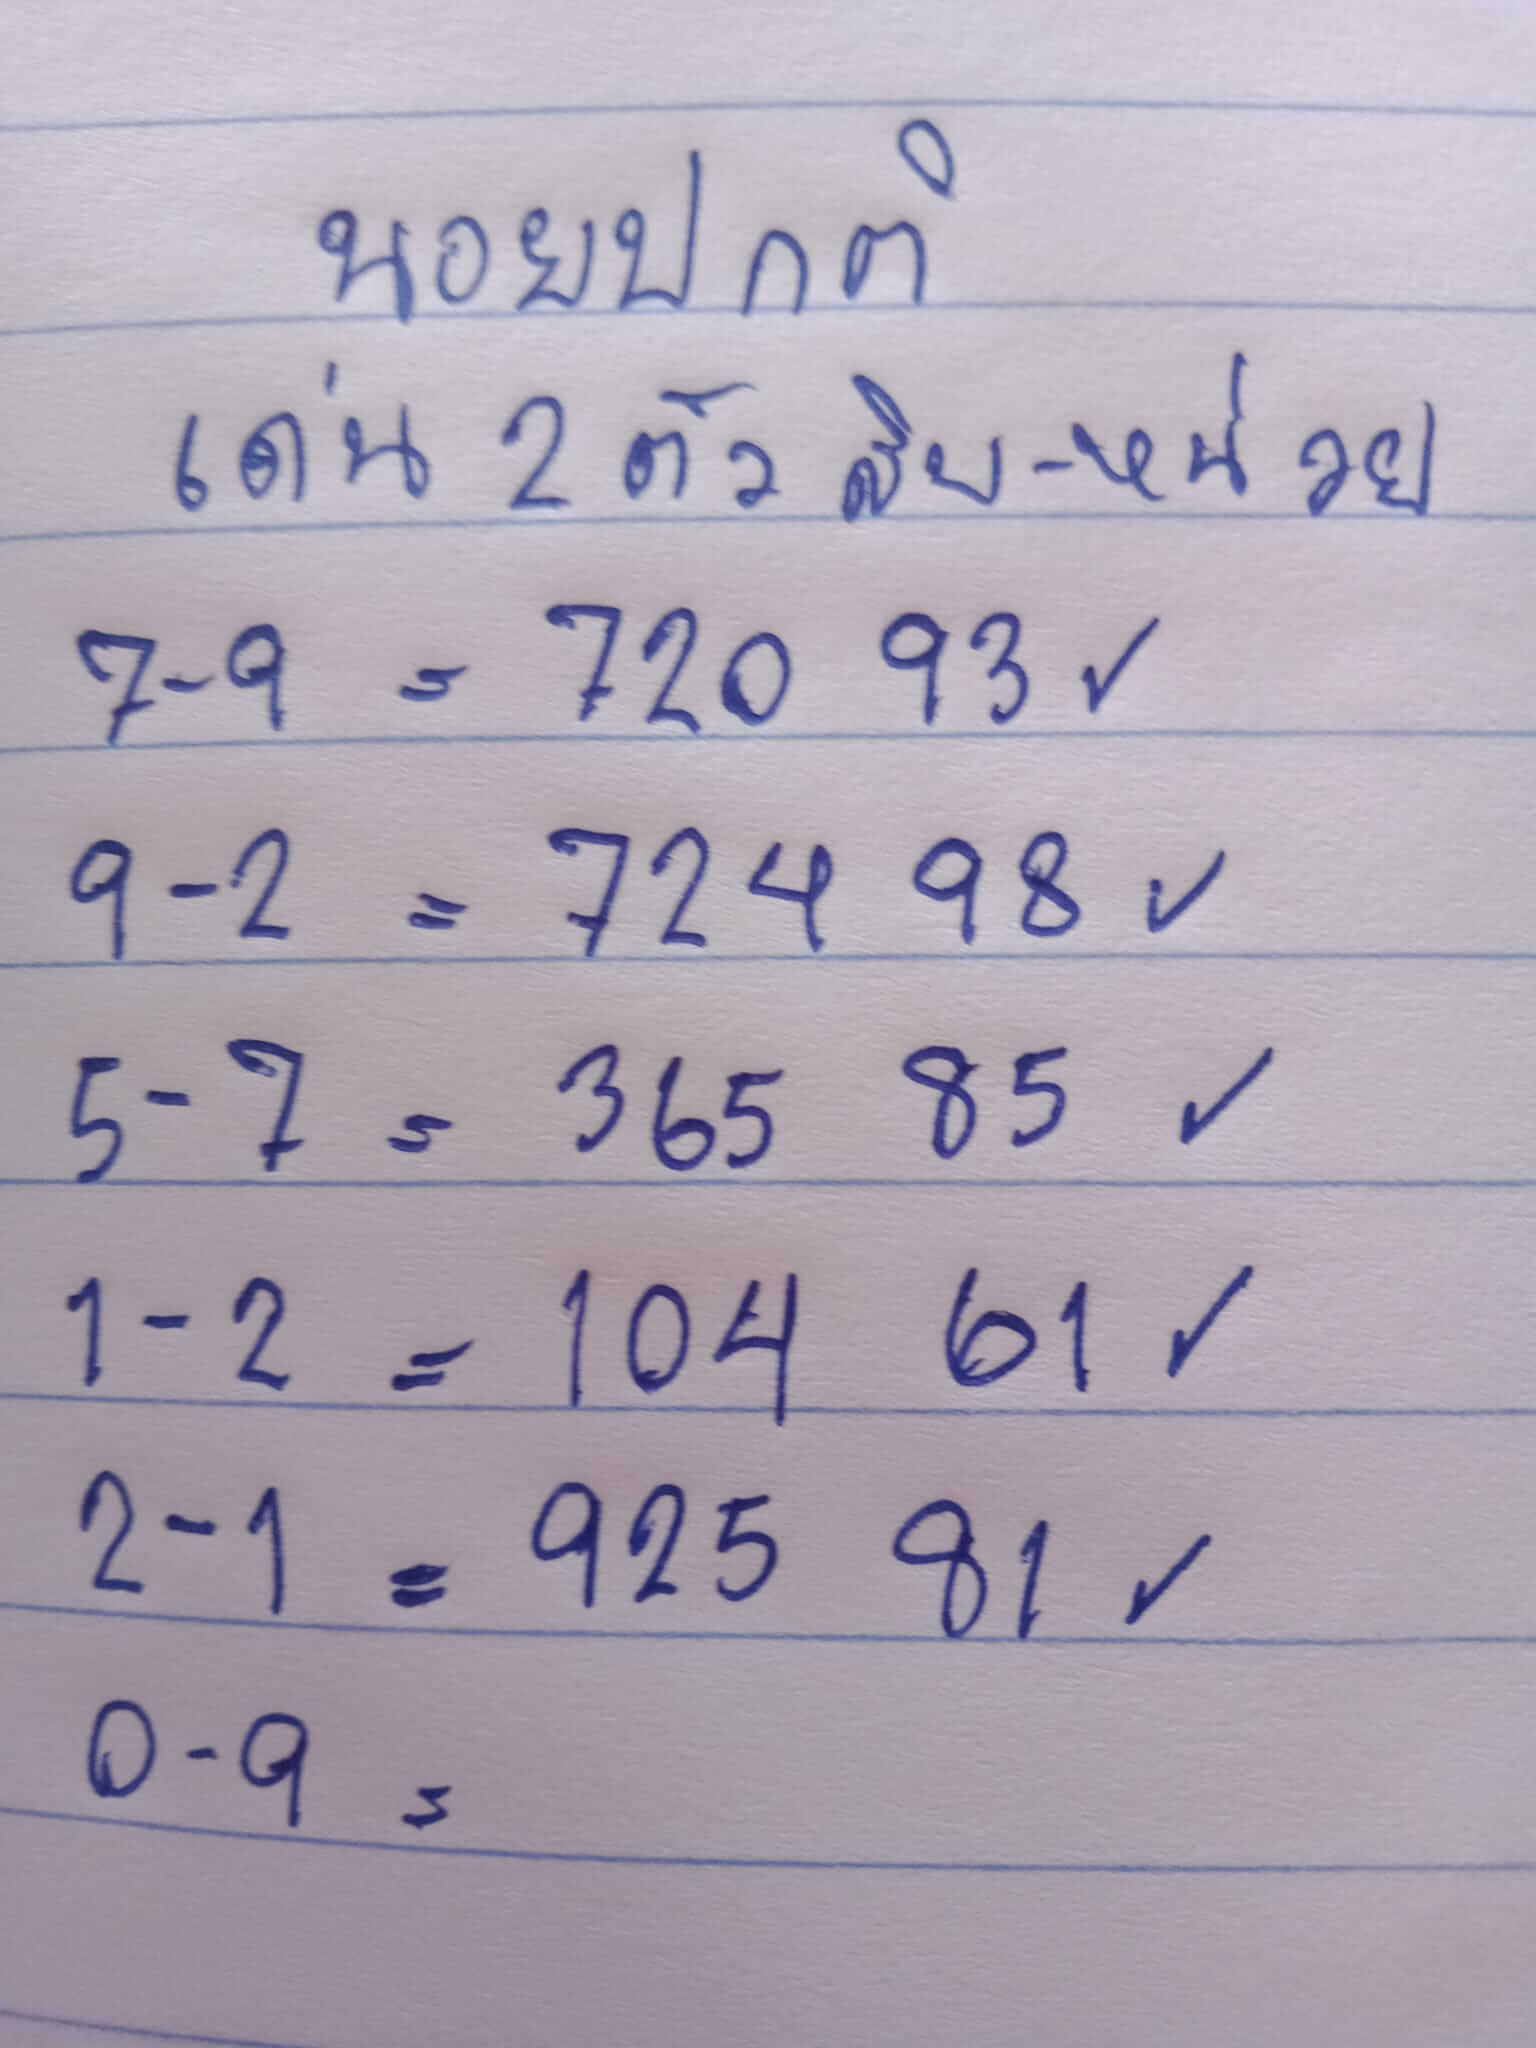 นอยปกติ
เด่น 2 ตัว สิบ-หน่วย
7-9 = 720 93 ✓
9-2 = 724 98 ✓
5-7 = 365 85 ✓
1-2 = 104 61 ✓
2-1 = 925 81 ✓
0-9 =